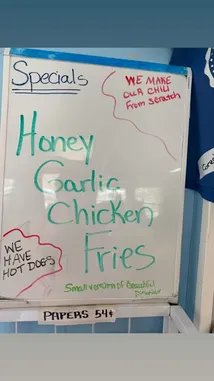 Specials
WE MAKE
OUR CHILI
From scratch
Honey
Garlic
Chicken
Fries
WE
HAVE
HOT DOGS
Small version of Beautiful
PAPERS 54¢